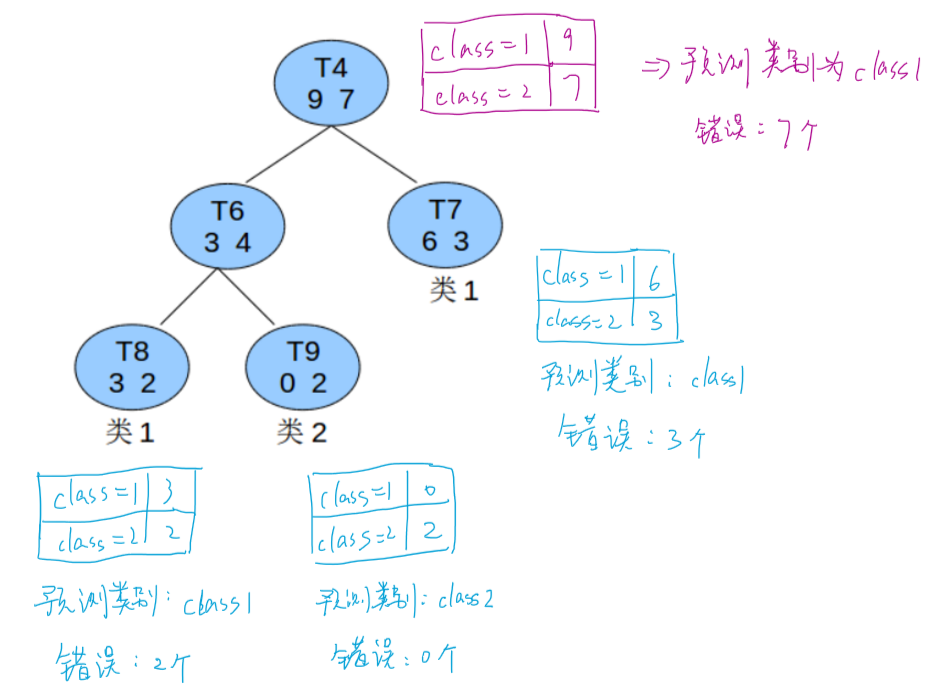 T4
9 7
class=1 9
class=2 7
⇒ 预测类别为class1
错误：7个
T6
3 4
T7
6 3
类1
class=1 6
class=2 3
预测类别：class1
错误：3个
T8
3 2
类1
T9
0 2
类2
class=1 3
class=2 2
预测类别：class1
错误：2个
class=1 0
class=2 2
预测类别：class2
错误：0个